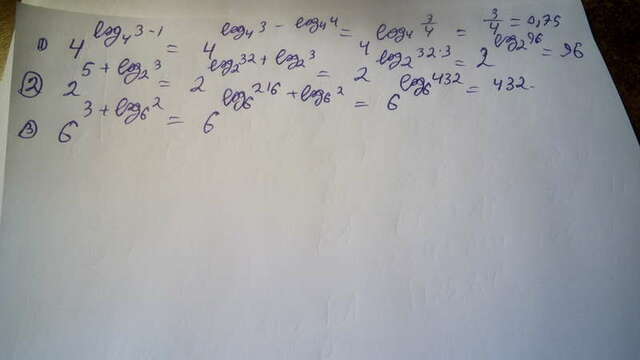 1) 4^{log₄3-1} = 4^{log₄3 - log₄4} = 4^{log₄ 3/4} = 3/4 = 0,75
2) 2^{5 + log₂3} = 2^{log₂32 + log₂3} = 2^{log₂32·3} = 2^{log₂96} = 96
3) 6^{3 + log₆2} = 6^{log₆216 + log₆2} = 6^{log₆432} = 432.